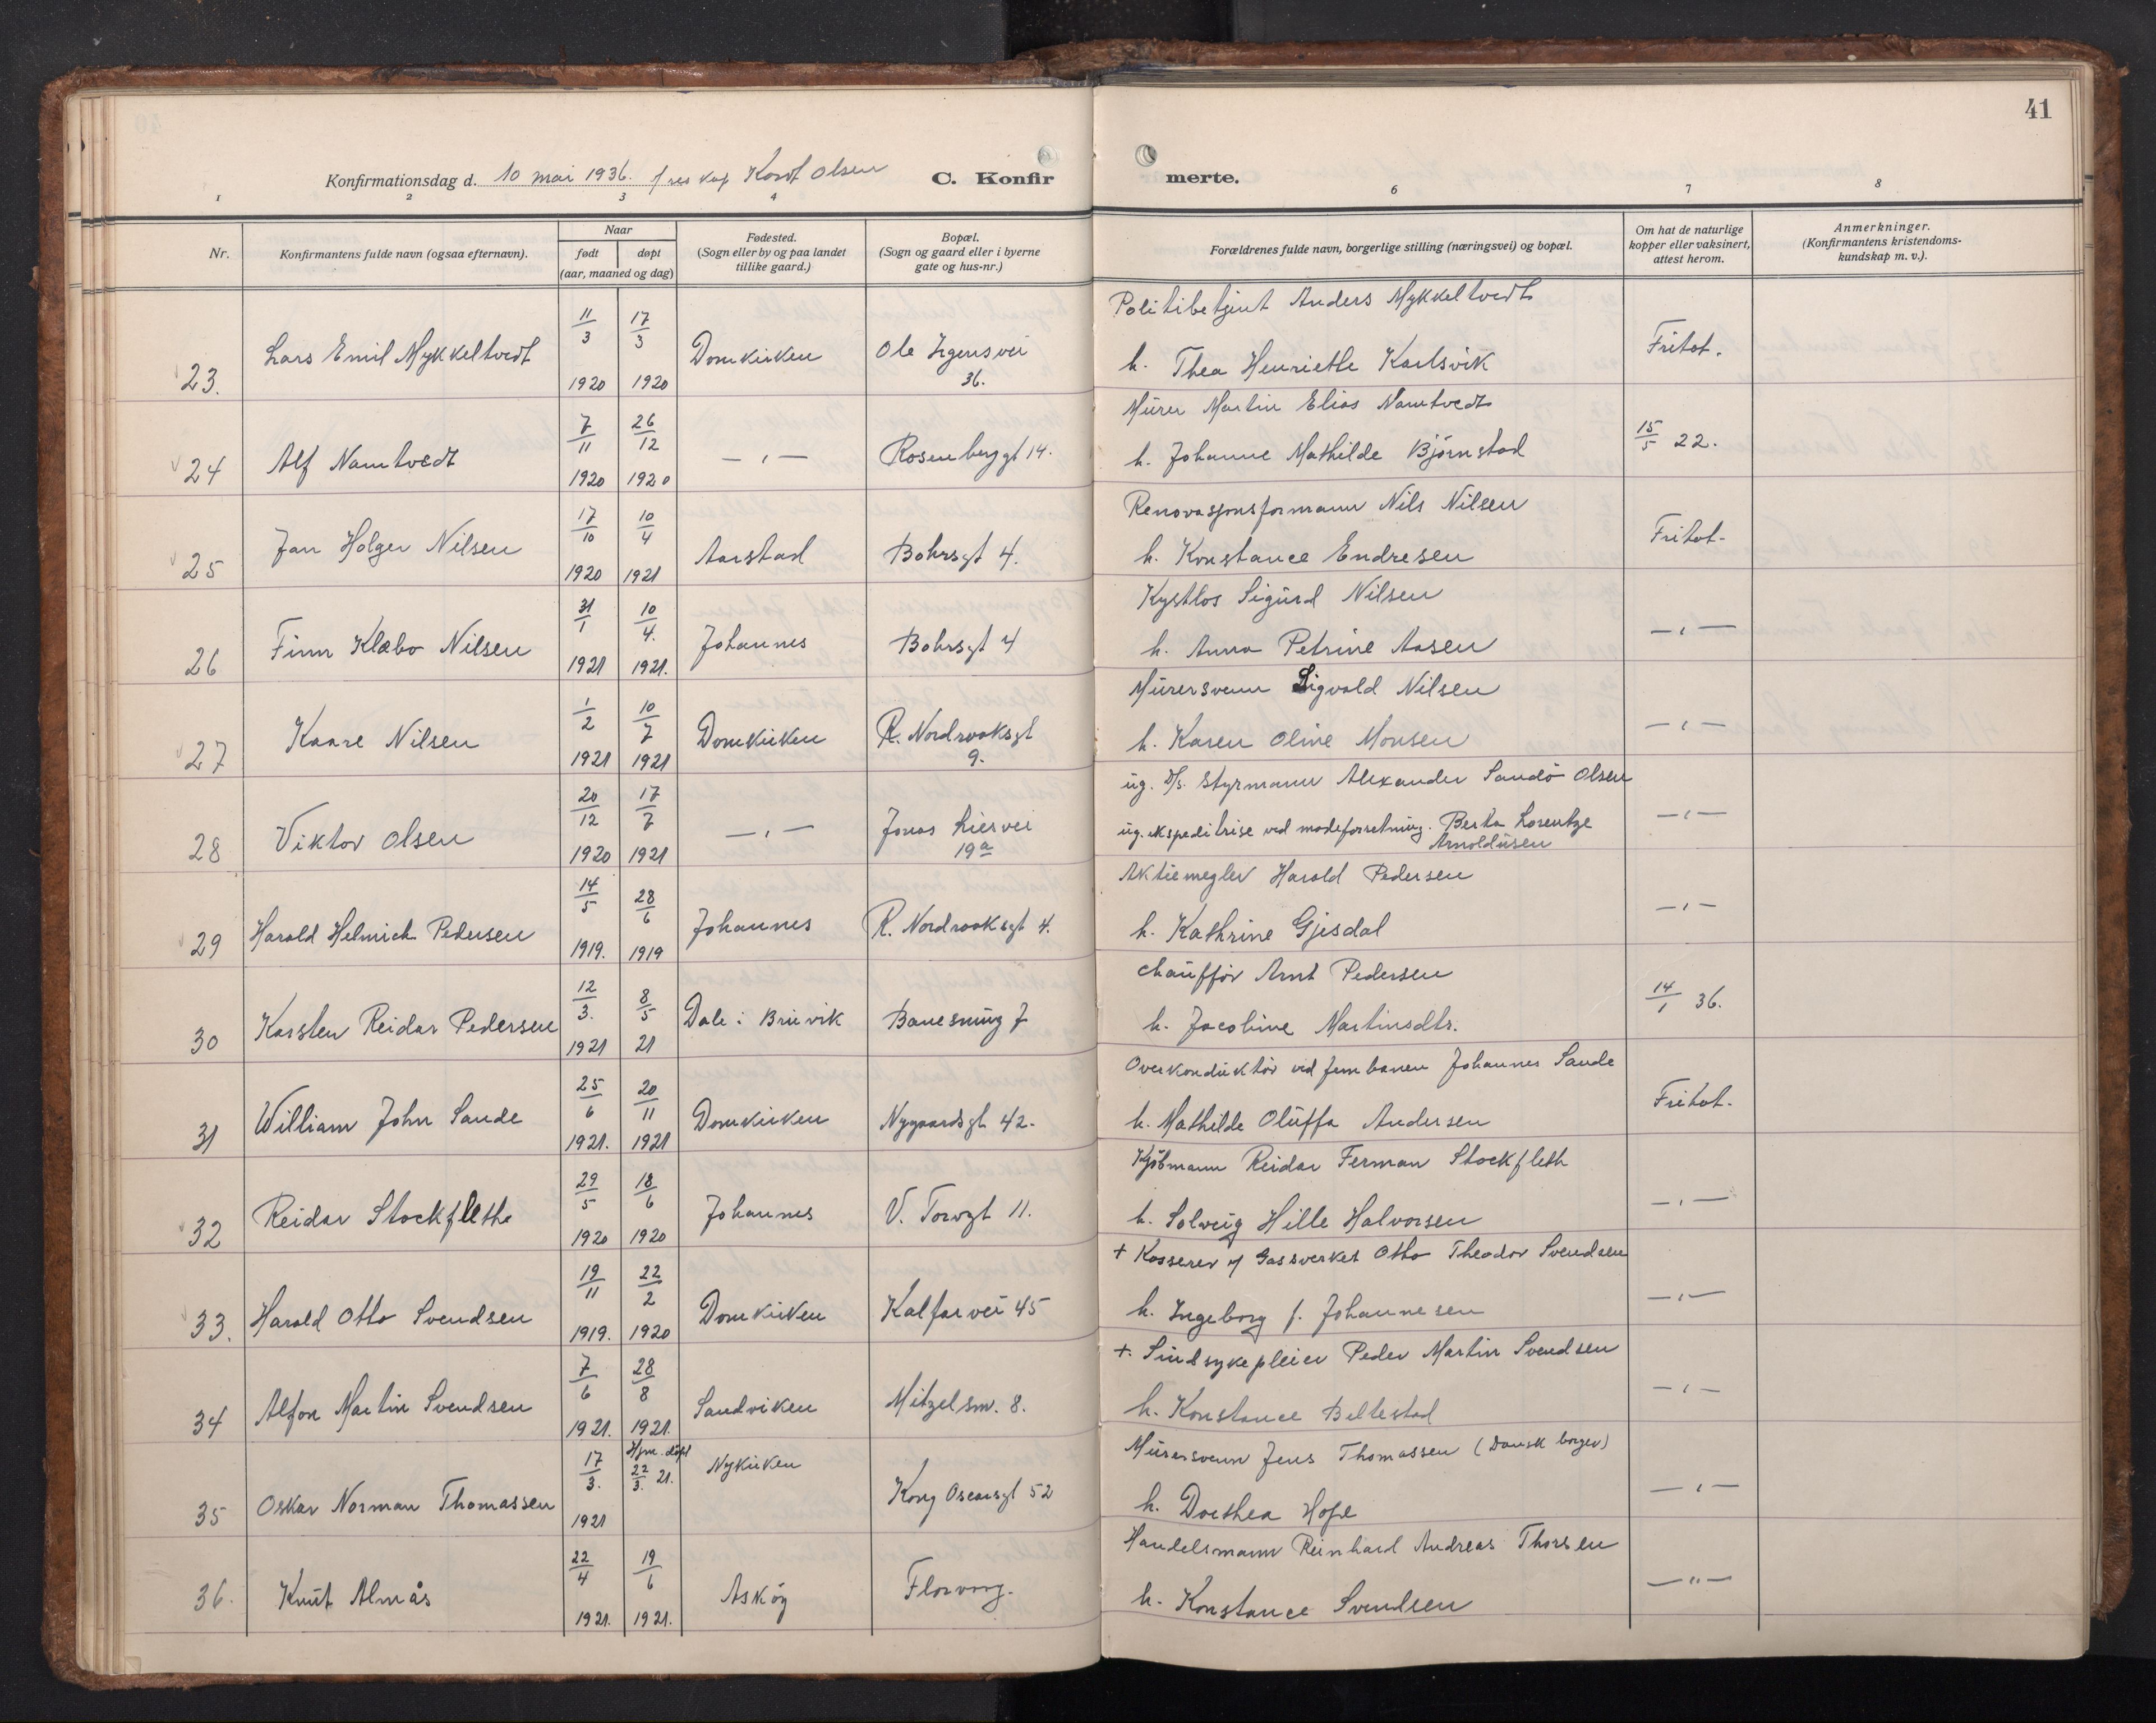 41
Konfirmationsdag d. 10 mai 1936. v/ res kap Kordt Olsen C. Konfirmerte.
1 2 3 4 6 7 8
Nr. Konfirmantens fulde navn (ogsaa efternavn). Naar født døpt (aar, maaned og dag) Fødested. (Sogn eller by og paa landet tillike gaard.) Bopæl. (Sogn og gaard eller i byerne gate og hus-nr.) Forældrenes fulde navn, borgerlige stilling (næringsvei) og bopæl. Om hat de naturlige kopper eller vaksinert, attest herom. Anmerkninger. (Konfirmantens kristendoms-kundskap m. v.).
23. Lars Emil Mykkeltvedt 11/3 1920 17/3 1920 Domkirken Ole Irgensvei 36. Politibetjent Anders Mykkeltvedt
h. Thea Henriette Karlsvik Fritat.
24 Alf Namtvedt 7/11 1920 26/12 1920 — " — Rosenberggt 14. Murer Martin Elias Namtvedt
h. Johanne Mathilde Bjørnstad 15/5 22.
25 Jan Holger Nilsen 17/10 1920 10/4 1921 Aarstad Bohrsgt 4. Renovasjonsformann Nils Nilsen
h. Konstance Endresen Fritat.
26 Finn Klæbo Nilsen 31/1 1921 10/4. 1921. Johannes Bohrsgt 4 Kystlos Sigurd Nilsen
h. Anna Petrine Aasen — " —
27 Kaare Nilsen 1/2 1921 10/7 1921 Domkirken R. Nordraaksgt 9. Murersvenn Sigvald Nilsen
h. Karen Oline Monsen — " —
28 Viktor Olsen 20/12 1920 17/7 1921 — " — Jonas Liesvei 19a ug. D/s. styrmann Alexander Sandø Olsen
ug. ekspeditrise ved modeforretning. Berta Lorentze Arnoldusen — " —
29 Harald Helmich Pedersen 14/5 1919. 28/6 1919 Johannes R. Nordraaksgt 4. Aktiemegler Harald Pedersen
h. Kathrine Gjesdal — " —
30 Karsten Reidar Pedersen 12/3. 1921 8/5 21 Dale i Bruvik Banesmug 7 chauffør Arnt Pedersen
h. Jacobine Martinsdtr. 14/1 36.
31 William John Sande 25/6 1921. 20/11 1921 Domkirken Nygaardsgt 42. Overkonduktør ved jernbanen Johannes Sande
h. Mathilde Oluffa Andersen Fritat.
32 Reidar Stockflethe 29/5 1920 18/6 1920 Johannes V. Torvgt 11. Kjøbmann Reidar Ferman Stockfleth
h. Solveig Hille Halvorsen — " —
33. Harald Otto Svendsen 19/11 1919. 22/2 1920 Domkirken Kalfarvei 45 + Kasserer v/ Gassverket Otto Theodor Svendsen
h. Ingeborg f. Johannesen — " —
34 Alfon Martin Svendsen 7/6 1921. 28/8 1921. Sandviken Mitzelsm. 8. +. Sindsykepleier Peder Martin Svendsen
h. Konstance Beltestad — " —
35 Oskar Norman Thomassen 17/3. 1921 Hjm. døpt 22/3. 21. Nykirken Kong Oscarsgt 52 Murersvenn Jens Thomassen (Dansk borger)
h. Dorthea Hope — " —
36. Knut Almås 22/4 1921. 19/6 1921. Askøy Florvåg. Handelsmann Reinhard Andreas Thorsen
h. Konstance Svendsen — " —